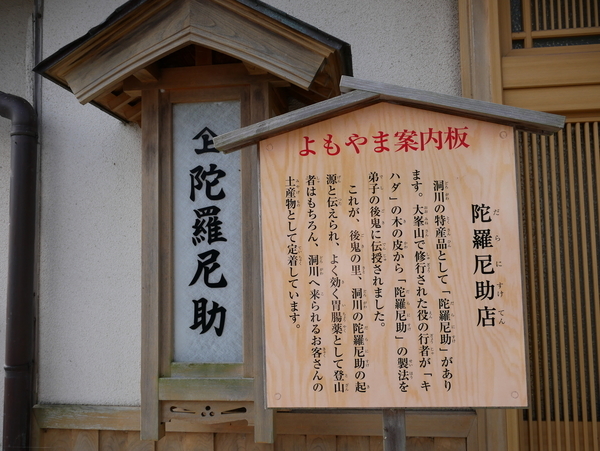 よもやま案内板
陀羅尼助店
だらにすけてん
洞川の特産品として「陀羅尼助」があり
ます。大峯山で修行された役の行者が「キ
ハダ」の木の皮から「陀羅尼助」の製法を
弟子の後鬼に伝授されました。
これが、後鬼の里、洞川の陀羅尼助の起
源と伝えられ、よく効く胃腸薬として登山
者はもちろん、洞川へ来られるお客さんの
土産物として定着しています。
陀羅尼助